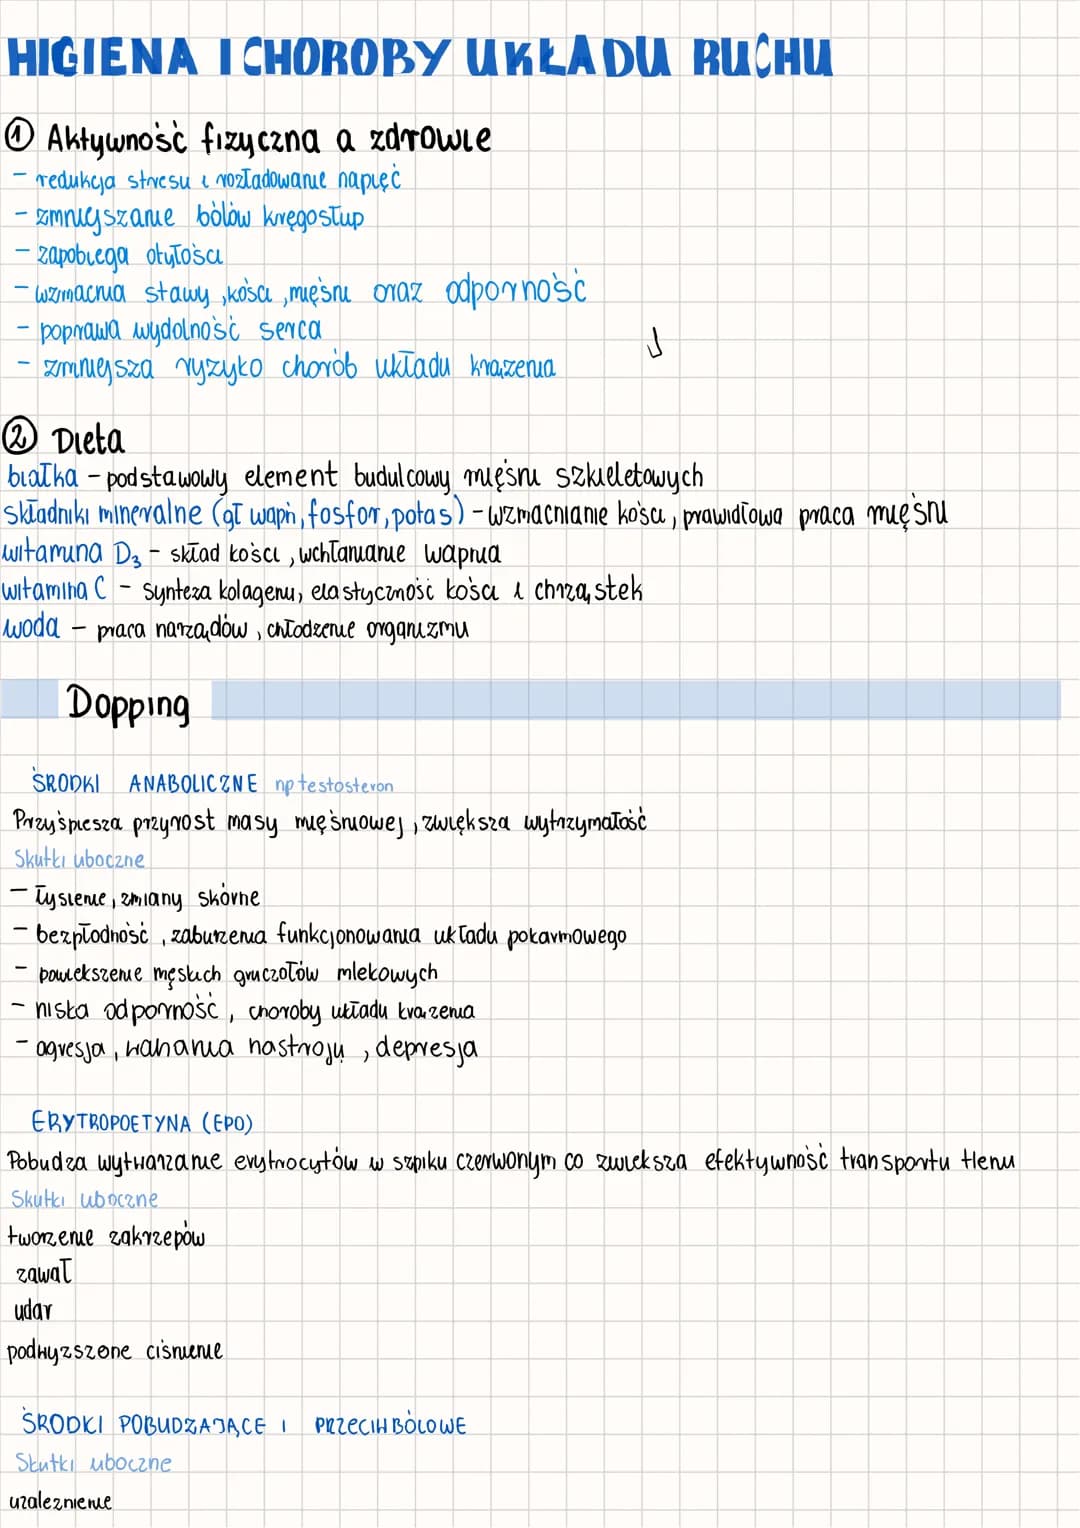 HIGIENA I CHOROBY UKŁADU RUCHU
① Aktywność fizyczna a zdrowie
- redukcja stresu i rozładowanie napięć
- zmniejszanie bólów kręgosłup
- zapobiega otyłości
- wzmacnia stawy, kości, mięśni oraz odporność
- poprawa wydolność serca
- zmniejsza ryzyko chorób układu krążenia
② Dieta
białka - podstawowy element budulcowy mięśni szkieletowych
składniki mineralne (gł wapń, fosfor, potas) - wzmacnianie kości, prawidłowa praca mięśni
witamina D₃ - skład kości, wchłanianie wapnia
witamina C - synteza kolagenu, elastyczność kości i chrząstek
woda - praca narządów, chłodzenie organizmu
Dopping
ŚRODKI ANABOLICZNE np testosteron
Przyśpiesza przyrost masy mięśniowej, zwiększa wytrzymałość
Skutki uboczne
- łysienie, zmiany skórne
- bezpłodność, zaburzenia funkcjonowania układu pokarmowego
- powiekszenie męskich gruczołów mlekowych
- niska odporność, choroby układu krążenia
- agresja, wahania nastroju, depresja
ERYTROPOETYNA (EPO)
Pobudza wytwarzanie erytrocytów w szpiku czerwonym co zwieksza efektywność transportu tlenu
Skutki uboczne
tworzenie zakrzepów
zawał
udar
podwyzszone ciśnienie
ŚRODKI POBUDZAJĄCE I PRZECIWBÓLOWE
Skutki uboczne
uzaleznienie